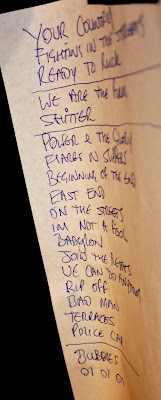 YOUR COUNTRY
FIGHTING IN THE STREETS
READY TO RUCK
WE ARE THE FIRM
SHITTER
POWER & THE GLORY
FLARES N SLIPPERS
BEGINNING OF THE END
EAST END
ON THE STREETS
IM NOT A FOOL
BABYLON
JOIN THE REJECTS
WE CAN DO ANYTHING
RIP OFF
BAD MAN
TERRACES
POLICE CAR
BUBBLES
OI OI OI